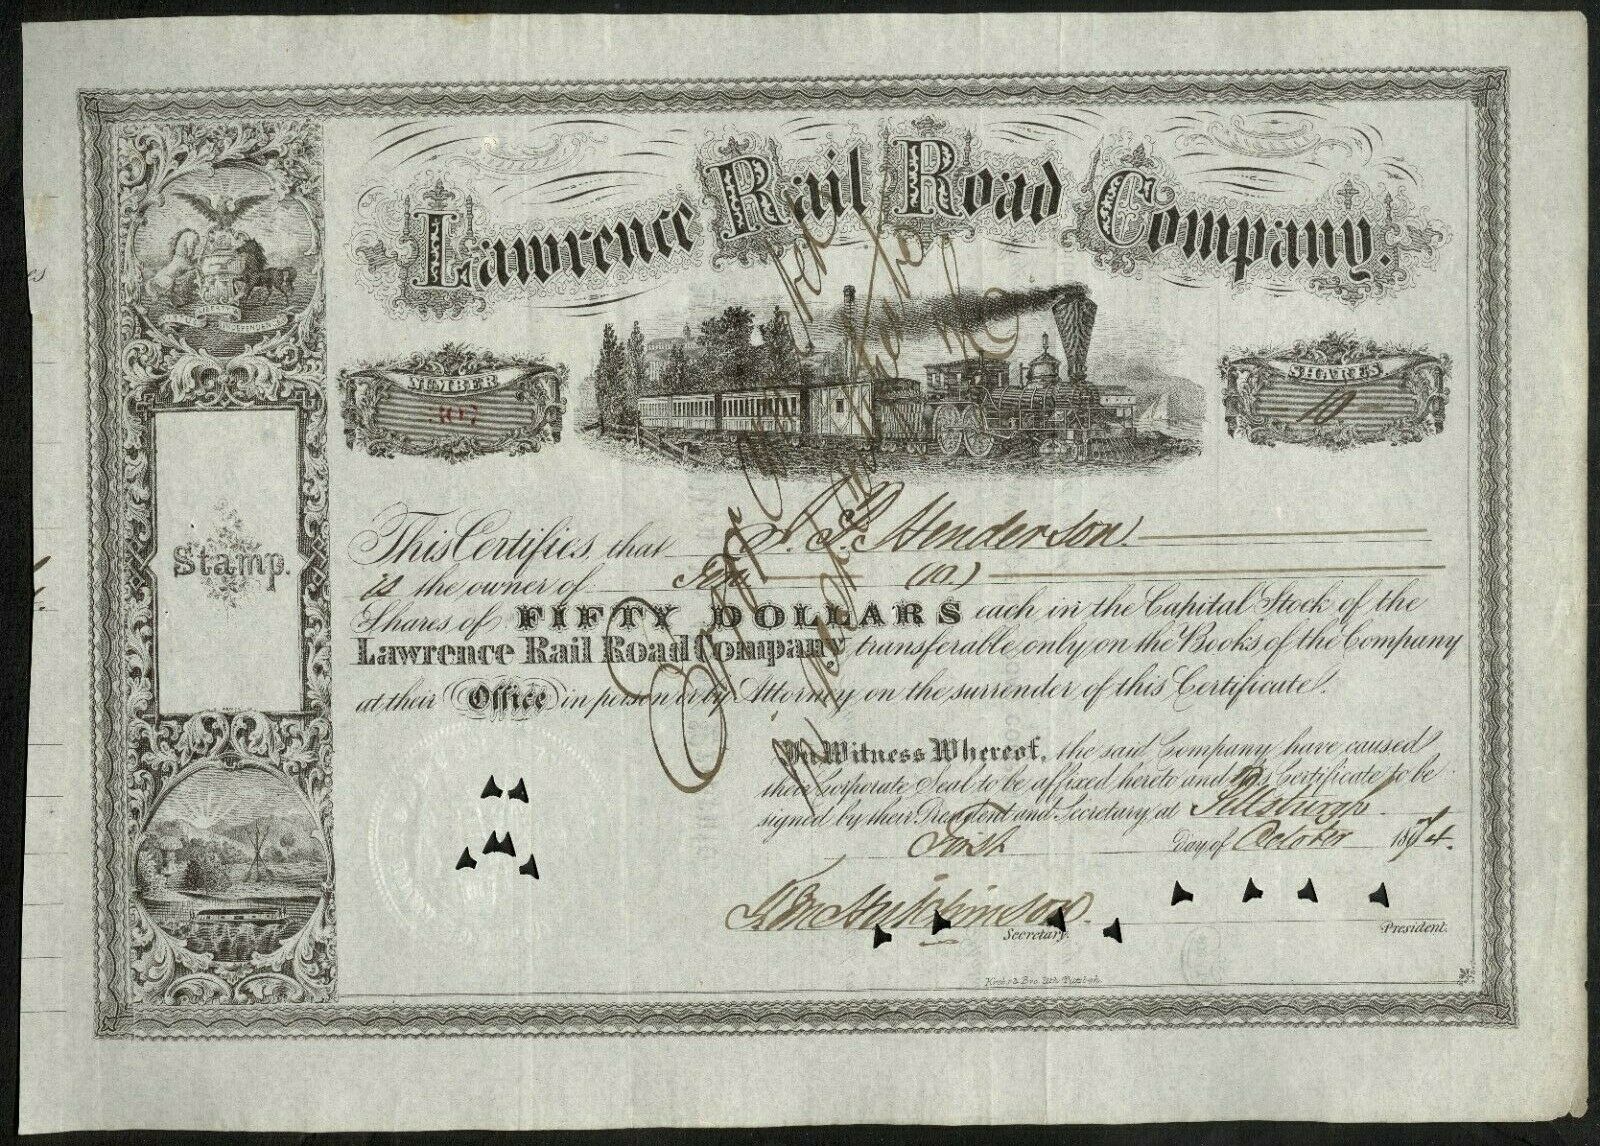 Lawrence Rail Road Company.
NUMBER
307
SHARES
10
VIRTUE LIBERTY INDEPENDENCE
Stamp.
This Certifies, that J. P. Henderson
is the owner of Ten (10)
Shares of FIFTY DOLLARS each in the Capital Stock of the
Lawrence Rail Road Company, transferable only on the Books of the Company
at their Office in person or by Attorney on the surrender of this Certificate.
In Witness Whereof, the said Company have caused
their Corporate Seal to be affixed hereto and this Certificate to be
signed by their President and Secretary, at Pittsburgh
First day of October 1874.
Hutchinson
Secretary.
President.